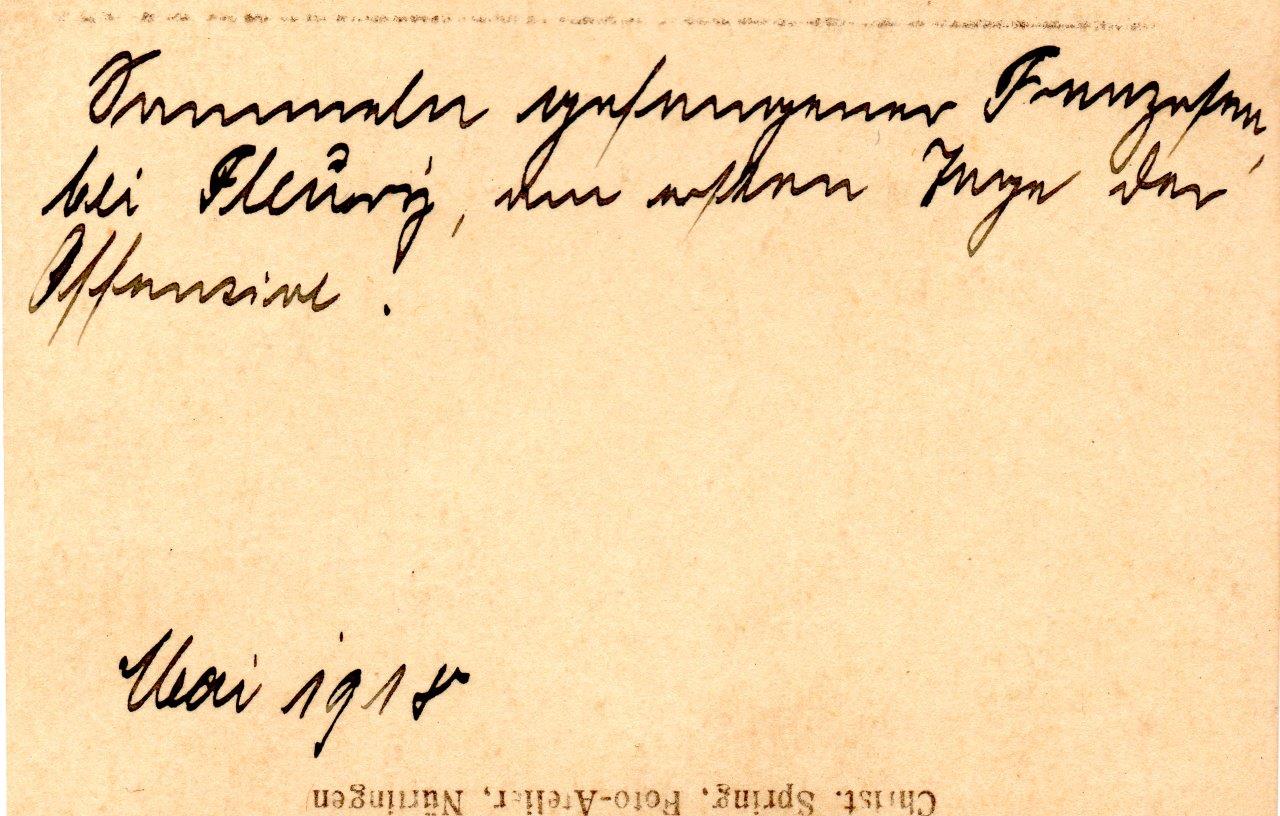 Sammeln gefangener Franzosen,
bei Fleury, am ersten Tage der
Offensive!
Mai 1918
Christ. Spring, Foto-Atelier, Nürtingen